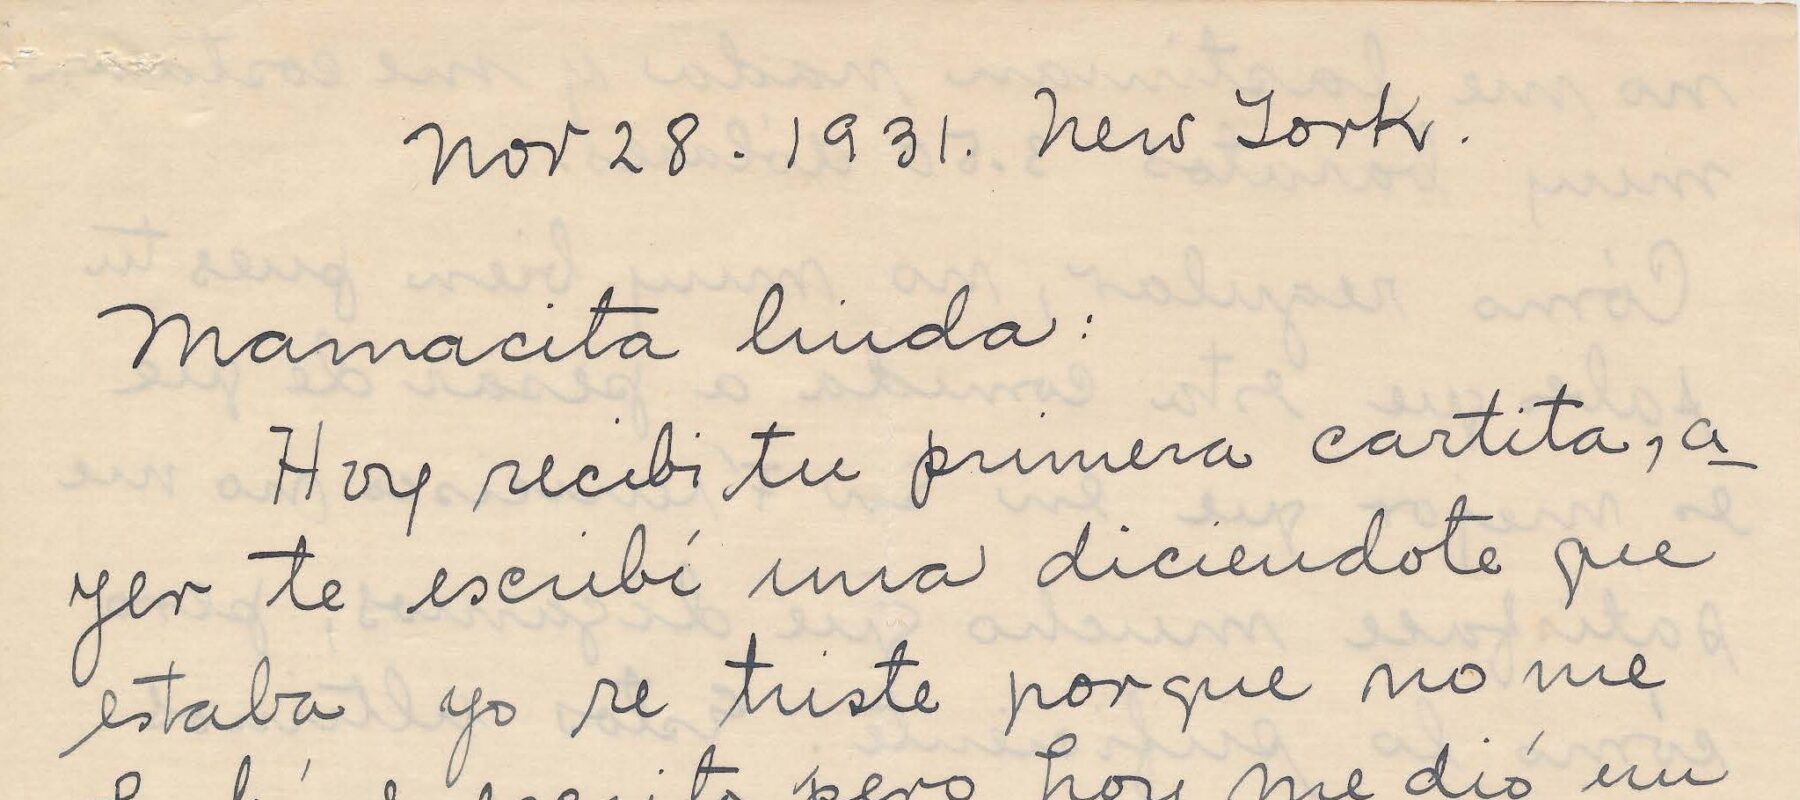 Nov 28. 1931. New York.
Mamacita linda:
Hoy recibi tu primera cartita, a
yer te escribí una diciendote que
estaba yo re triste porque no me
escrito pero hoy me dió un